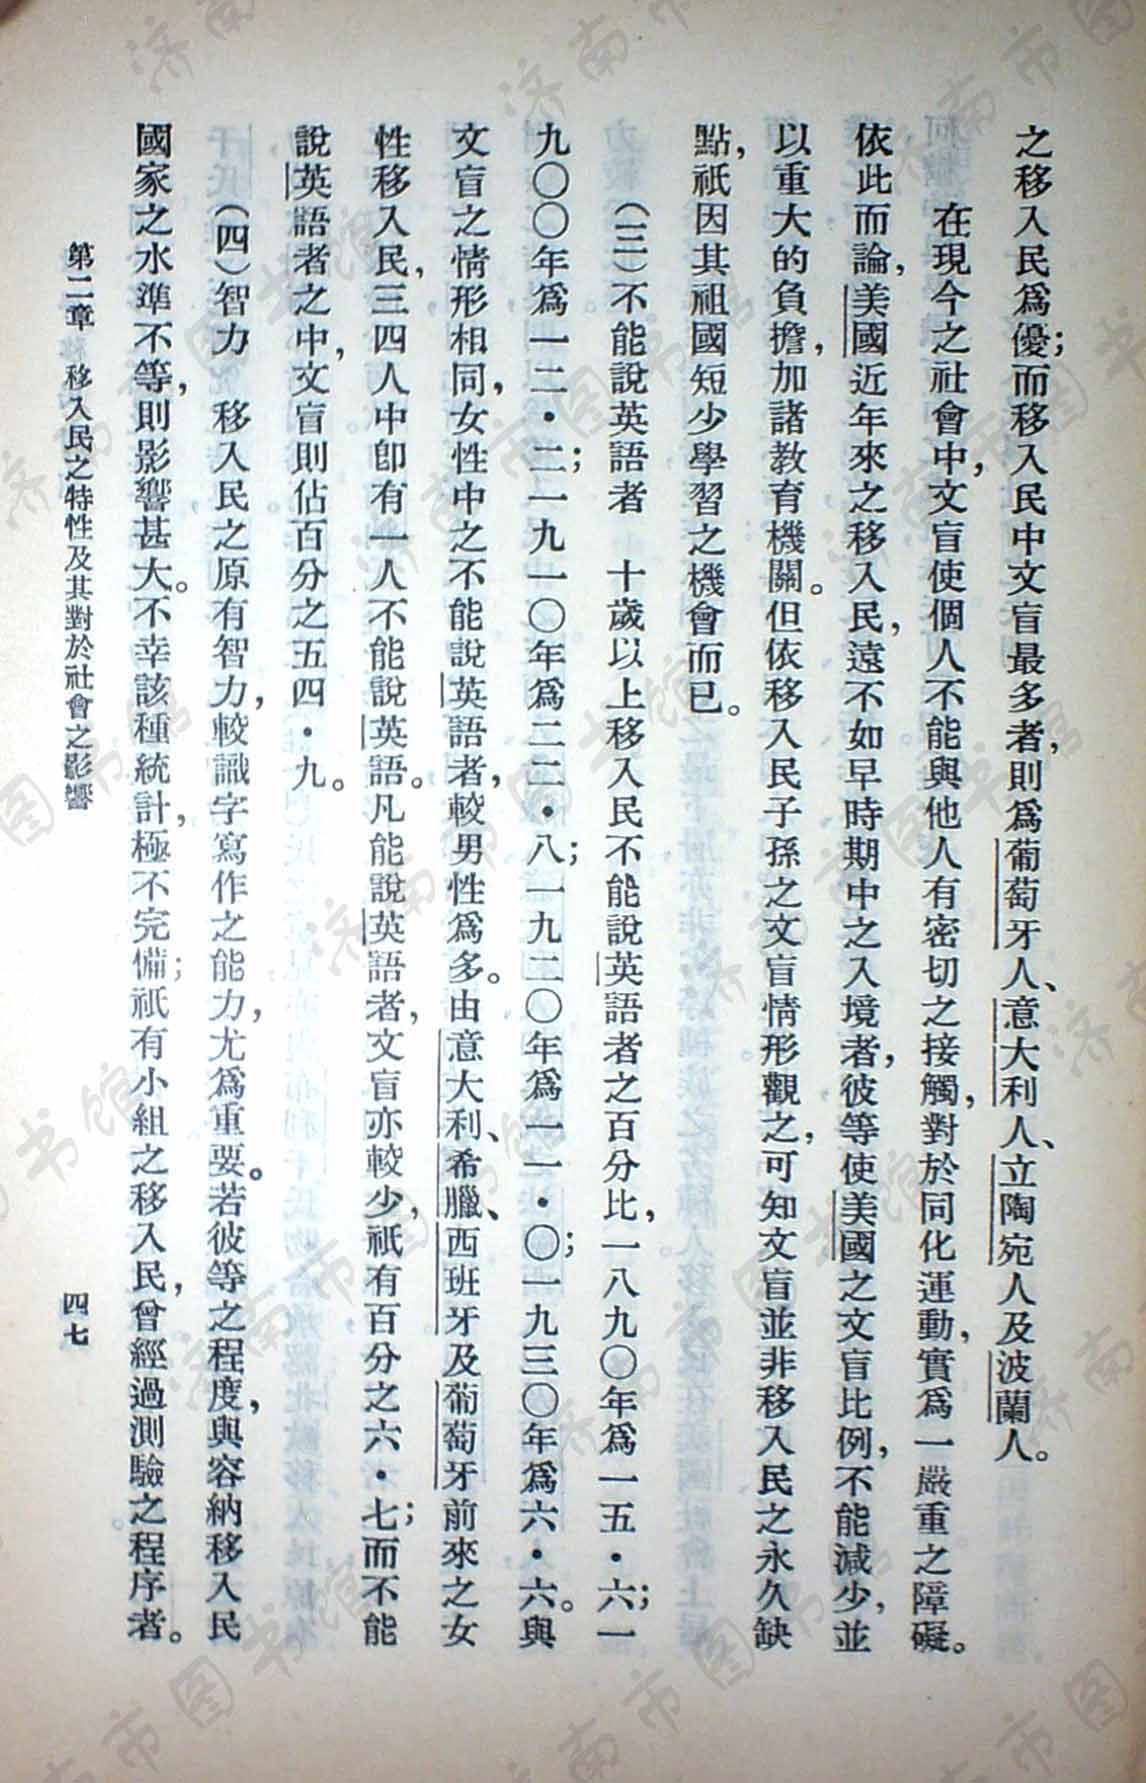 之移入民爲優；而移入民中文盲最多者，則爲葡萄牙人、意大利人、立陶宛人及波蘭人。
在現今之社會中，文盲使個人不能與他人有密切之接觸，對於同化運動，實爲一嚴重之障礙。
依此而論，美國近年來之移入民，遠不如早時期中之入境者，彼等使美國之文盲比例，不能減少，並
以重大的負擔，加諸教育機關。但依移入民子孫之文盲情形觀之，可知文盲並非移入民之永久缺
點，祇因其祖國短少學習之機會而已。
（三）不能說英語者　十歲以上移入民不能說英語者之百分比，一八九〇年爲一五・六；一
九〇〇年爲一二・二；一九一〇年爲二二・八；一九二〇年爲一一・〇；一九三〇年爲六・六。與
文盲之情形相同，女性中之不能說英語者，較男性爲多。由意大利、希臘、西班牙及葡萄牙前來之女
性移入民，三四人中卽有一人不能說英語。凡能說英語者，文盲亦較少，祇有百分之六・七；而不能
說英語者之中，文盲則佔百分之五四・九。
（四）智力　移入民之原有智力，較識字寫作之能力，尤爲重要。若彼等之程度，與容納移入民
國家之水準不等，則影響甚大。不幸該種統計，極不完備；祇有小組之移入民，曾經過測驗之程序者。
第二章　移入民之特性及其對於社會之影響
四七
济南市图书馆